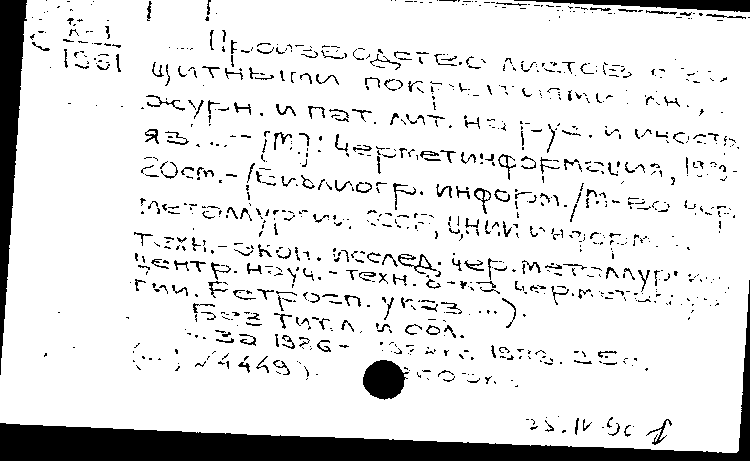 К-1
1961
Производство листов с за-
щитными покрытиями: кн.,
журн. и пат. лит. на рус. и иностр.
яз. ... -- [М.]: Черметинформация,
20см. - (Библиогр. информ. / М-во чер.
металлургии СССР, ЦНИИ информ. и
техн.-экон. исслед. чер. металлургии,
Центр. науч.-техн. б-ка чер. металлур-
гии. Ретросп. указ. ...).
Без тит. л. и обл.
... за 1986 - 1988. 25с.
(...; №4449).
25.IV.90